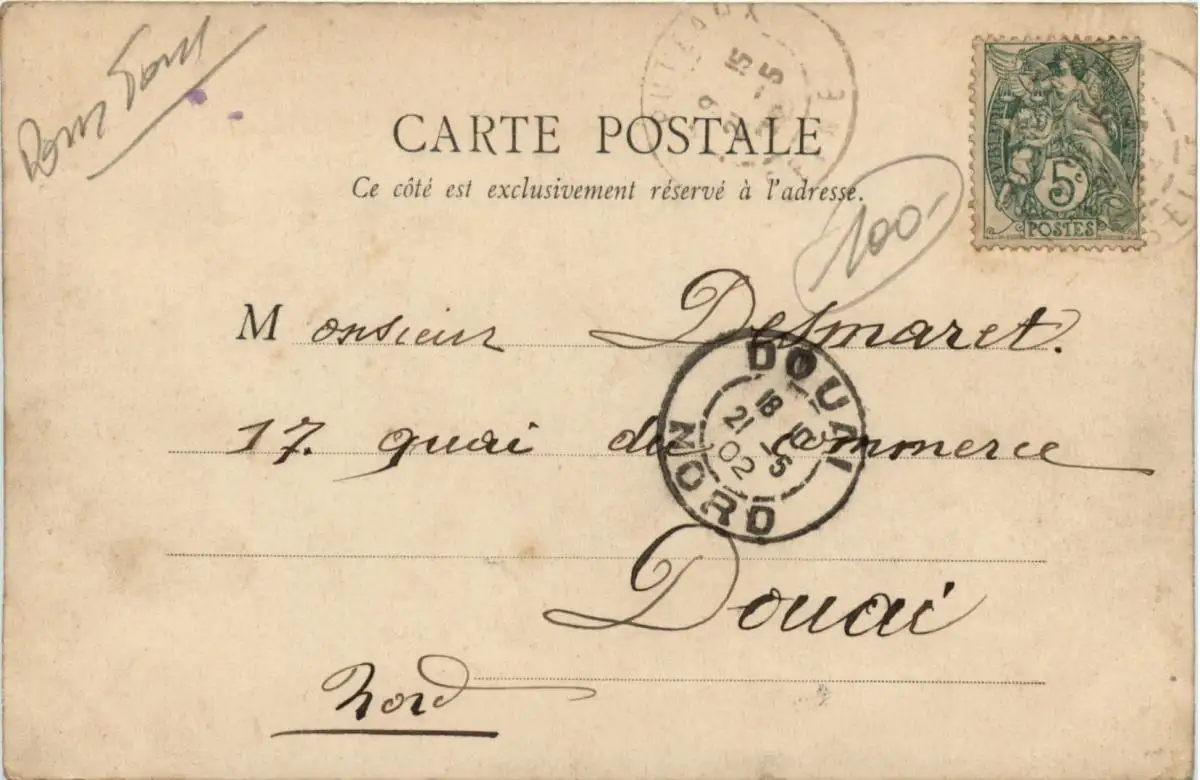 CARTE POSTALE
Ce côté est exclusivement réservé à l'adresse.
5c
POSTES
100-
Monsieur Desmaret.
DOUAI
18 10
21 -5
02
NORD
17. quai du Commerce
Douai
Nord